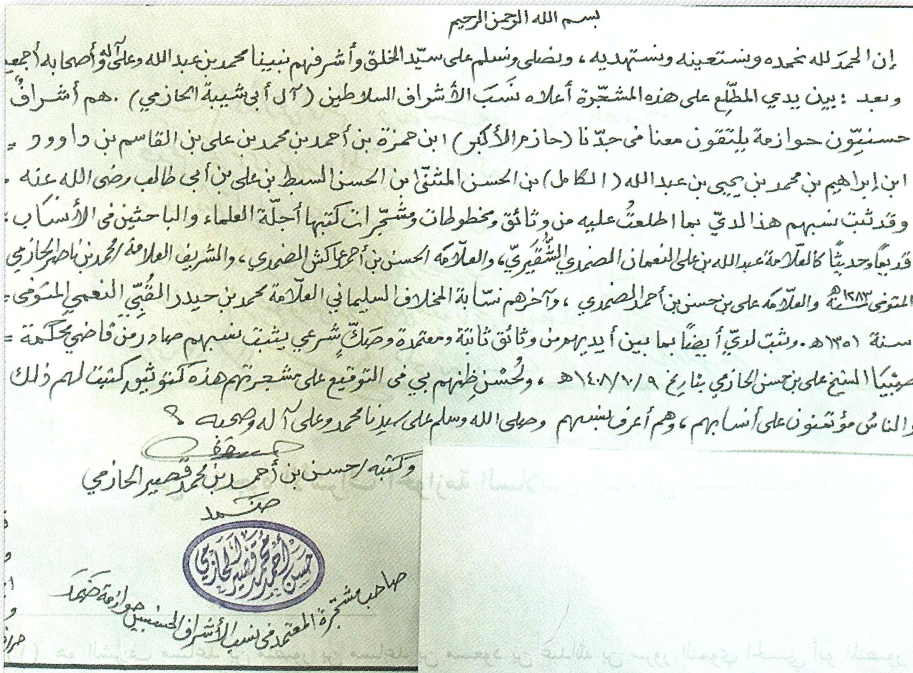 بسم الله الرحمن الرحيم
إن الحمد لله نحمده ونستعينه ونستهديه ، ونصلي ونسلم على سيّد الخلق وأشرفهم نبينا محمد بن عبدالله وعلى آله وأصحابه أجمعي
وبعد : بين يدي المطّلع على هذه المشجّرة أعلاه نَسَبَ الأشراف السلاطين ( آل أبي شيبة الحازمي ) . هم أشرافٌ
حسنيّون حوازمة يلتقون معنا في جدّنا ( حازم الأكبر ) ابن حمزة بن أحمد بن محمد بن علي بن القاسم بن داوود
ابن إبراهيم بن محمد بن يحيى بن عبدالله ( الكامل ) بن الحسن المثنى ابن الحسن السبط بن علي بن أبي طالب رضي الله عنه
وقد ثبت نسبهم هذا لديّ بما اطلعتُ عليه من وثائق ومخطوطات ومشجّرات كتبها أجلّة العلماء والباحثين في الأنساب
قديماً وحديثاً كالعلّامة عبدالله بن علي النعمان الضمدي الشُّقَيريّ ، والعلّامة الحسن بن أحمد عاكش الضمدي ، والشريف العلامة / محمد بن ناصر الحازمي
المتوفى سنة ١٢٨٣هـ والعلامة علي بن حسن بن أحمد الضمدي ، وآخرهم نسّابة المخلاف السليماني العلّامة محمد بن حيدر القُبّي النعمي المتوفى
سنة ١٣٥١هـ . وثبت لديّ أيضاً بما بين أيديهم من وثائق ثابتة ومعتمدة وصكٍّ شرعي يثبت نسبهم صادر من قاضي محكمة
صبيا الشيخ علي بن حسن الحازمي بتاريخ ١٤٠٨/١٠/٩هـ ، ولحُسْن ظنهم بي في التوقيع على مشجرتهم هذه كتوثيق كتبت لهم ذلك
والناسُ مؤتمنون على أنسابهم ، وهم أعرف بنسبهم وصلى الله وسلم على سيدنا محمد وعلى آله وصحبه
وكتبه / حسن بن أحمد بن محمد قصير الحازمي
ضمد
حسن أحمد محمد قصير الحازمي
صاحب مشجّرة المعتمد في نسب الأشراف الحسنيين حوازمة ضمد